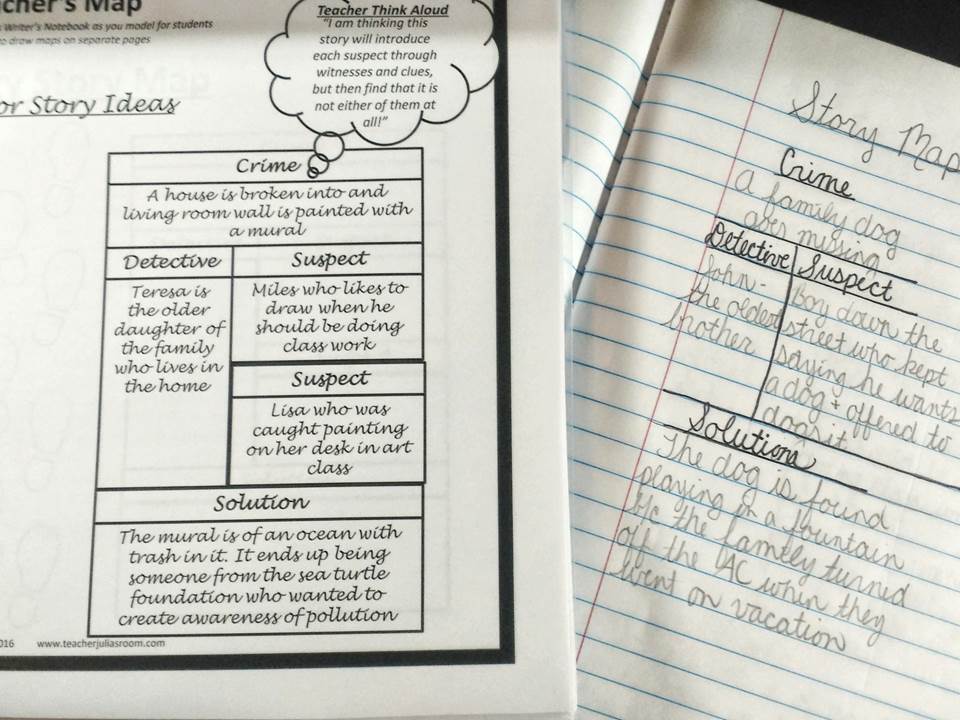 cher's Map
Writer's Notebook as you model for students
o draw maps on separate pages
or Story Ideas
Teacher Think Aloud
"I am thinking this
story will introduce
each suspect through
witnesses and clues,
but then find that it is
not either of them at
all!"
Crime
A house is broken into and
living room wall is painted with
a mural
Detective
Teresa is
the older
daughter of
the family
who lives in
the home
Suspect
Miles who likes to
draw when he
should be doing
class work
Suspect
Lisa who was
caught painting
on her desk in art
class
Solution
The mural is of an ocean with
trash in it. It ends up being
someone from the sea turtle
foundation who wanted to
create awareness of pollution
016 www.teacherjuliasroom.com
Story Map
Crime
A family dog
goes missing
Detective
John-
the oldest
brother
Suspect
Boy down the
street who kept
saying he wants
a dog + offered to
dogsit
Solution
The dog is found
playing in a fountain
b/c the family turned
off the AC when they
went on vacation